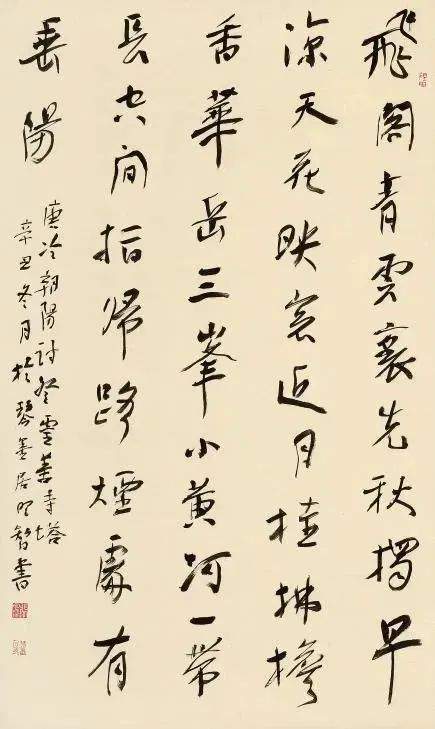 飛閣青雲裏先秋獨早
涼天花映窓近月桂拂檐
香華岳三峯小黃河一帶
長空間指歸路煙處有
垂陽
唐冷朝陽詩登靈善寺塔
辛丑冬月於琴墨居明智書